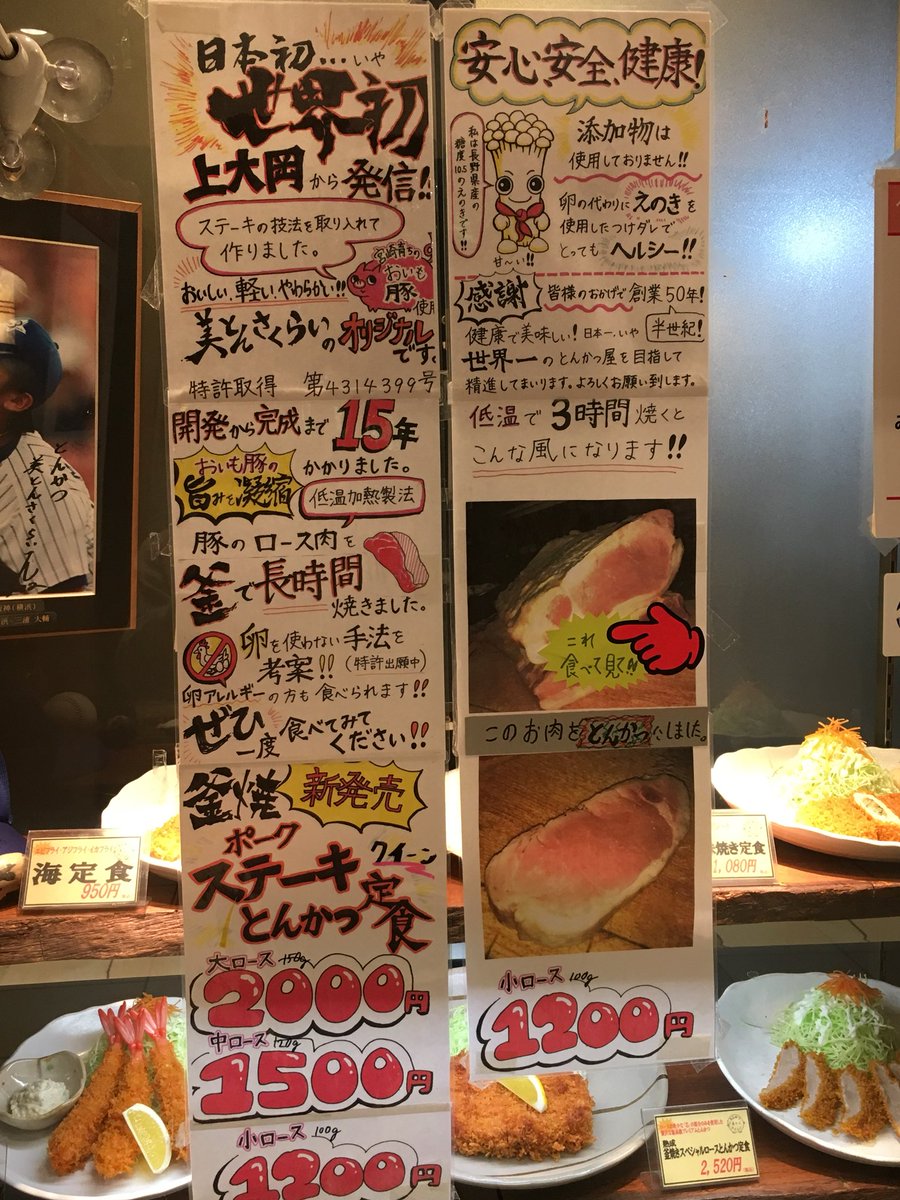 日本初…いや
世界初
上大岡から発信!!
ステーキの技法を取り入れて
作りました。
宮崎育ちの
おいも
豚
使用
おいしい、軽い、やわらかい!!
美とんさくらいのオリジナル
です。
特許取得 第4314399号
開発から完成まで15年
かかりました。
おいも豚の
旨みを凝縮
低温加熱製法
豚のロース肉を
釜で長時間
焼きました。
卵を使わない手法を
考案!!(特許出願中)
卵アレルギーの方も食べられます!!
ぜひ
一度食べてみて
ください!!
釜焼
新発売
ポーク
クイーン
ステーキ
とんかつ
定食
大ロース 150g
2000円
中ロース 120g
1500円
小ロース 100g
1200円
安心、安全、健康!
私は長野県産の
糖度10.5のえのきです!!
甘〜い!!
添加物は
使用しておりません!!
卵の代わりにえのきを
使用したつけダレで
とってもヘルシー!!
感謝
皆様のおかげで創業50年!
半世紀!
健康で美味しい!日本一、いや
世界一のとんかつ屋を目指して
精進してまいります。よろしくお願い致します。
低温で3時間焼くと
こんな風になります!!
これ
食べて見て!!
このお肉をとんかつにしました。
小ロース 100g
1200円
とんかつ
美とんさくらい
三浦 大輔
海定食
950円
焼き定食
1,080円
熟成
釜焼きスペシャルロースとんかつ定食
2,520円